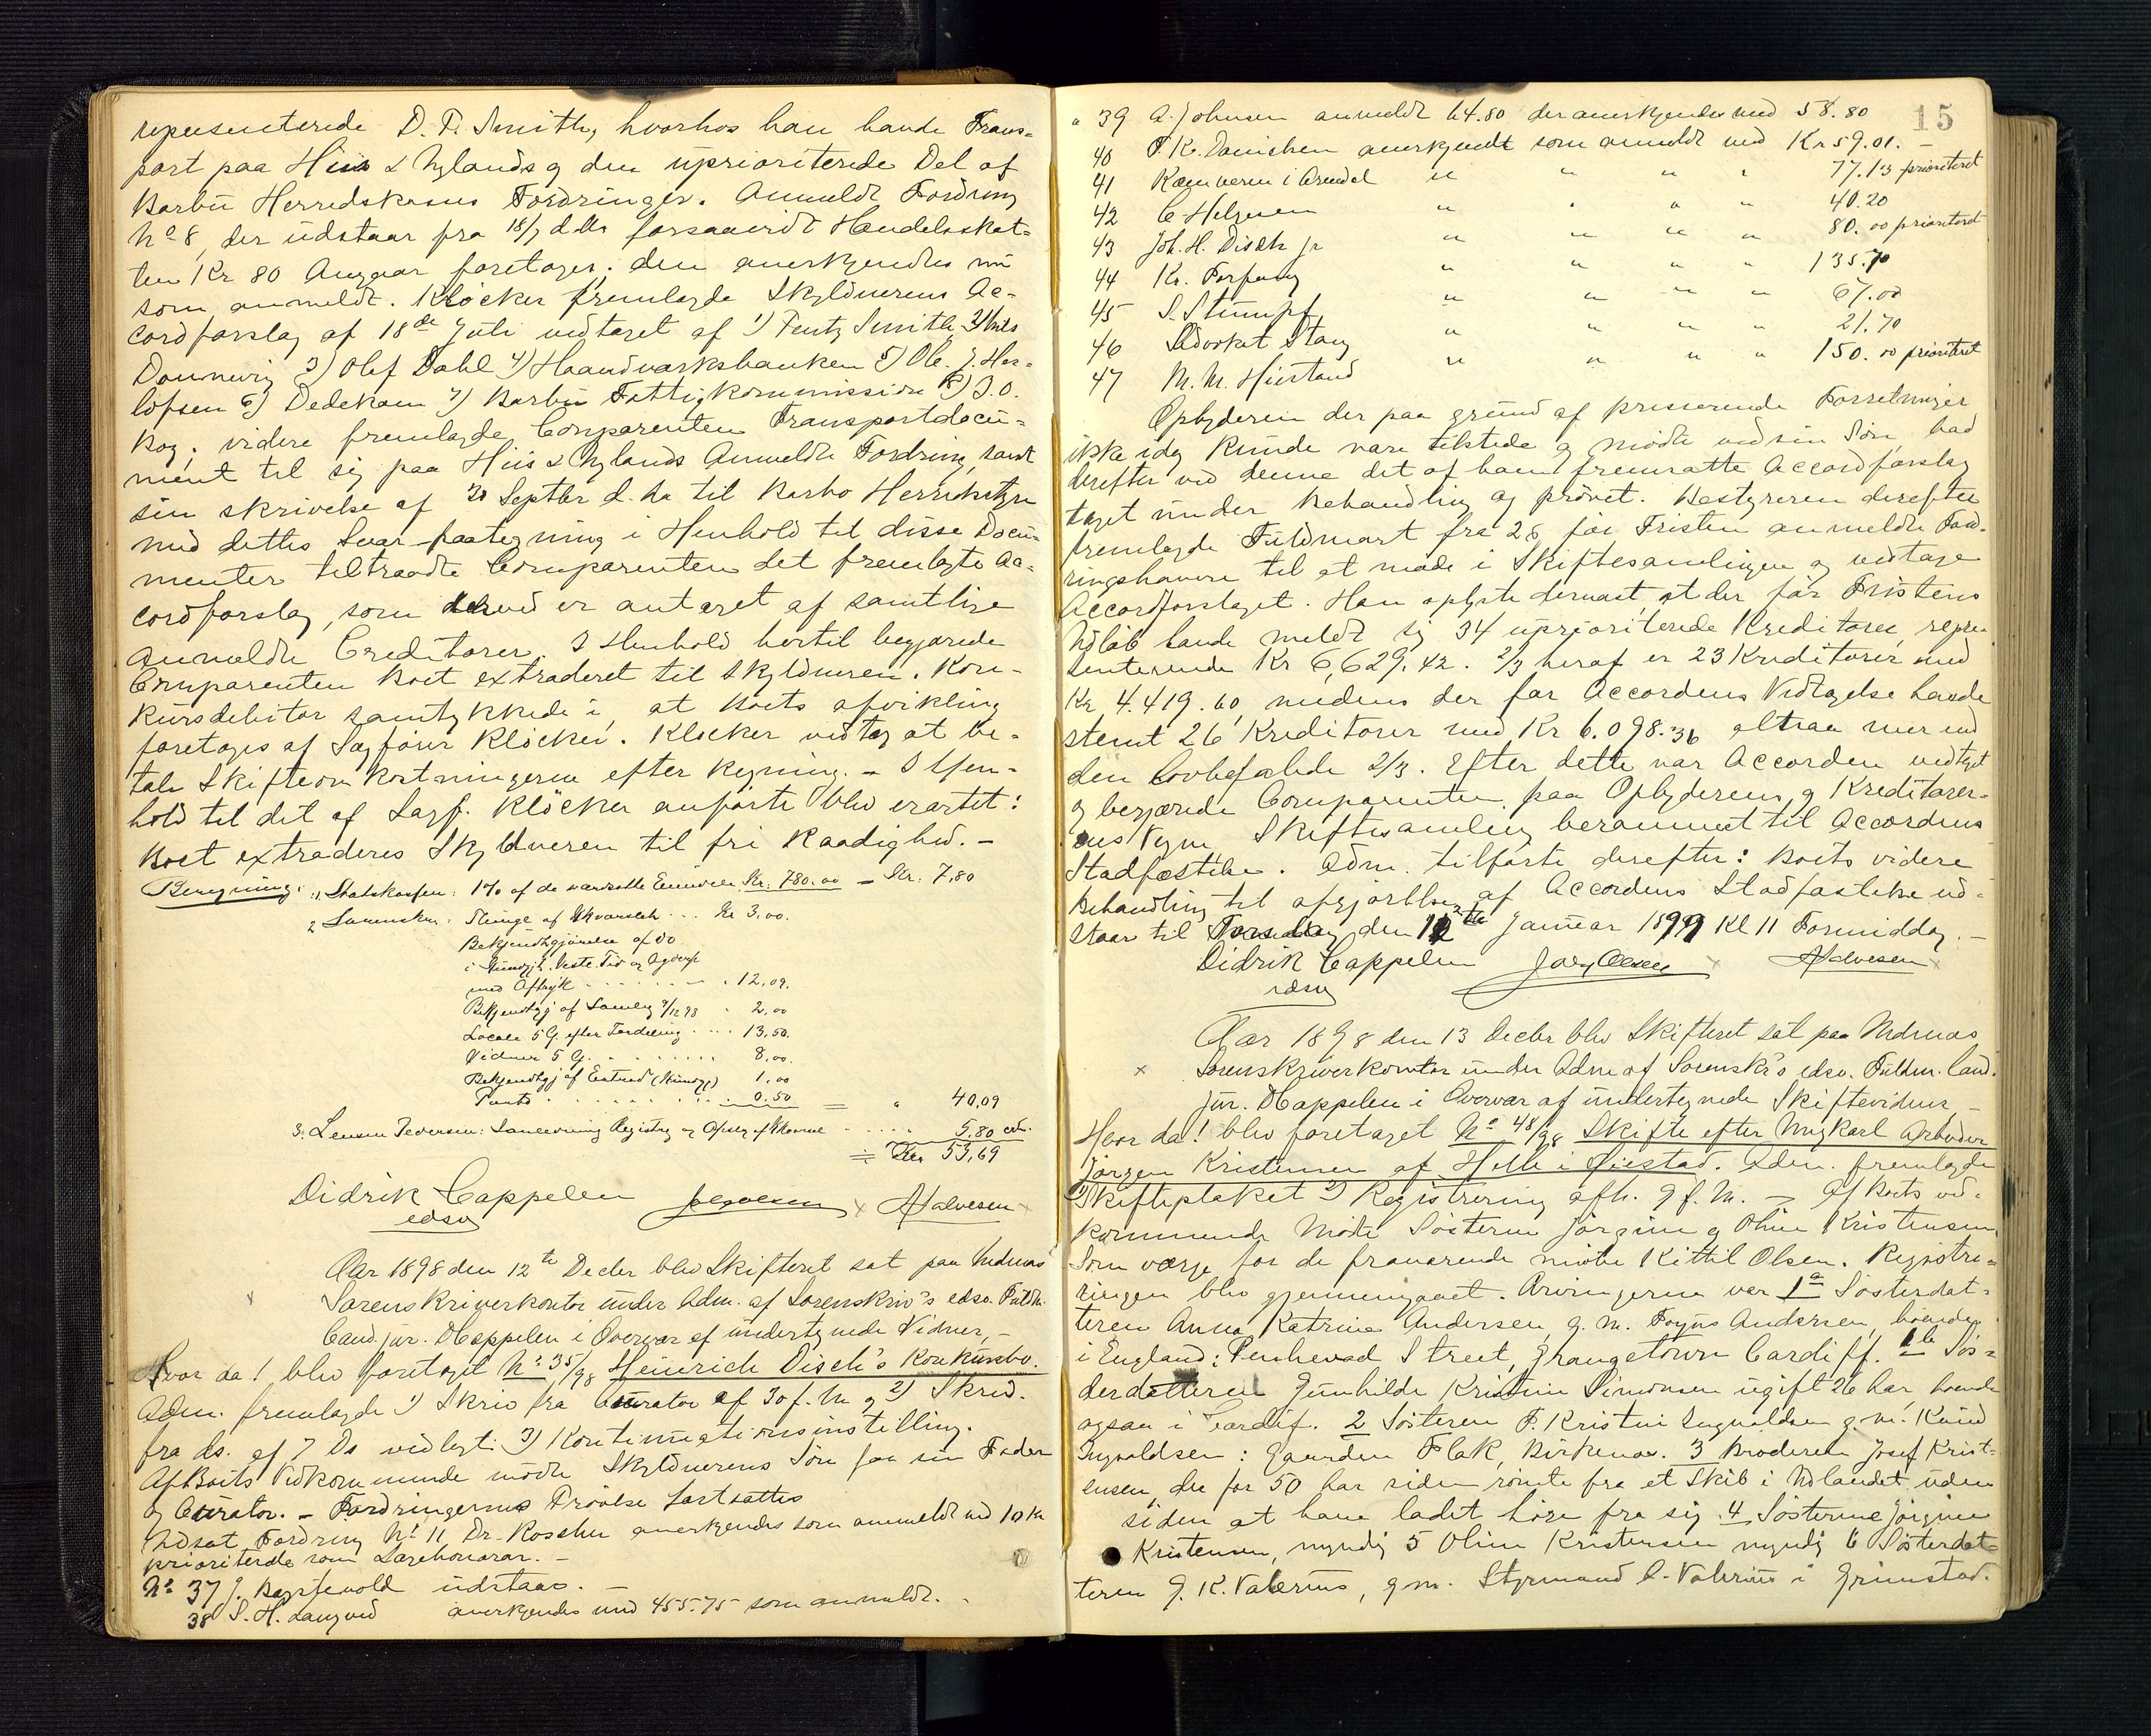 representerede D. P. Smith, hvorhos han havde Trans-
port paa Hiis & Nylands og den uprioriterede Del af
Barbu Herredskasses Fordringer. Anmeldt Fordring
No 8, der udstaar fra 18/7 d. A. forsaavidt Handelsskat-
ten Kr 80 Angaar foretages; den anerkjendtes nu
som anmeldt. Klöcker fremlagde Skyldnerens Ac-
cordforslag af 18de Juli vedtaget af 1) Fentz Smith 2) Nils
Dannevig 3) Olaf Dahl 4) Haandværksbanken 5) Ole J. Her-
lofsen 6) Dedekam 7) Barbu Fattigkommission 8) J. O.
Bog; videre fremlagde Comparenten Transportdocu-
ment til sig paa Hiis & Nylands Anmeldte Fordring samt
sin skrivelse af 20 Septbr d. Aa til Barbo Herredsstyre
med dettes Svar-paategning i Henhold til disse Docu-
menter tiltraadte Comparenten det fremlagte Ac-
cordforslag, som derved er antaget af samtlige
Anmeldte Creditorer. I Henhold hertil begjærede
Comparenten Boet extraderet til Skyldneren. Kon-
kursdebitor samtykkede i, at Boets afvikling
foretages af Sagfører Klöcker. Klöcker vedtog at be-
tale Skifteomkostningerne efter Regning. – I Hen-
hold til det af Sagf. Klöcker anførte blev eragtet:
Boet extraderes Skyldneren til fri Raadighed. –
Beregning: 1, Statskassen: 1% af de værdsatte Eiendele Kr. 780.00 – Kr. 7,80
2 Sorenskr. Stevnge af Skvarseh. ... Kr 3,00.
Bekjendtgjørelse af Do
i Kundgjt. Veste. Tid og Agderp
med Aftryk . . . . . . 12,09.
Bekjendtgj af Samlg 9/12 98 " 2,00
Locale 5 G. efter Fordeling . . . 13,50.
Vidner 5 G. . . . . . . 8,00.
Bekjendtgj af Extrad (Kundgj) 1,00
Porto . . . . . . . . 0.50 = " 40,09
3. Lensm Tedersen: Registrg og . . . . 5,80
= Kr 53,69
Didrik Cappelen
edsv Halvesen
Aar 1898 den 12te Decbr blev Skifteret sat paa Nedenæs
Sorenskriverkontor under Adm. af Sorenskriv's edsv. Fuldm.
Cand. jur. D Cappelen i Overvær af undertegnede Vidner, –
Hvor da! blev foretaget No 35/98 Heinrich Disch's Konkursbo.
Adm. fremlagde 1) Skriv fra Curator af 30 f. M og 2) Skriv.
fra ds. af 7 Ds vedlagt: 3) Kontinuationsinstilling.
Af Boets Vedkommende mødte Skyldnerens Søn for sin Fader
og Curator. – Fordringernes Prøvelse fortsattes
Udsat Fordring No 11 Dr. Roscher anerkjendes som anmeldt ved 10 Kr
prioriterede som Lægehonorar. –
No 37 J. Bagstevold udstaar. –
38 S. H. Langved anerkjendes med 455.75 som anmeldt. –
15
" 39 A. Johnsen anmeldt 64.80 der anerkjendes med 58.80
40 P. K. Danielsen anerkjendt som anmeldt med Kr 59.01. –
41 Kæmneren i Arendal " " " " 77.13 prioriteret
42 C Helgesen " " " " 40.20
43 Joh. H. Disch jr " " " " 80.00 prioriteret
44 Kr. Forfang " " " " 135.70
45 S. Stumpf " " " " 67.00
46 Advokat Stang " " " " 21.70
47 M. M. Hiestand " " " " 150.00 prioriteret
Opbyderen der paa grund af presserende Forretninger
ikke idag kunde være tilstede og mødte ved sin Søn, bad
derefter ved denne det af ham fremsatte Accordforslag
taget under Behandling og prøvet. Bestyreren derefter
fremlagde Fuldmagt fra 26 før Fristen anmeldte Ford-
ringshavere til at møde i Skiftesamlingen og vedtage
Accordforslaget. Han oplyste dernæst, at der før Fristens
Udløb havde meldt sig 34 uprioriterede Kreditorer, repre-
senterende Kr 6,629.42. 2/3 heraf er 23 Kreditorer med
Kr 4.419.60, medens der for Accordens Vedtagelse havde
stemt 26 Kreditorer med Kr 6.098.36 altsaa mer end
den lovbefalede 2/3. Efter dette var Accorden vedtaget
og begjærede Comparenten, paa Opbyderens og Kreditorer-
nes Vegne, Skiftesamling berammet til Accordens
Stadfæstelse. Adm. tilførte derefter: Boets videre
Behandling til afgjørelsen af Accordens Stadfæstelse ud-
staar til Torsdag den 12te Januar 1899 Kl 11 Formiddag. –
Didrik Cappelen Halvesen
edsv
Aar 1898 den 13 Decbr blev Skifteret sat paa Nedenæs
Sorenskriverkontor under Adm af Sorenskr's edsv. Fuldm. Cand.
jur. D Cappelen i Overvær af undertegnede Skiftevidner, –
Hvor da! blev foretaget No 48/98 Skifte efter Ungkarl Arbeider
Jörgen Kristensen af Helle i Øiestad. Adm. fremlagde
1) Skifteplaket 2) Registrering afh. 9 f. M. – Af Boets ved-
kommende Mødte Søstrene Jörgine og Oline Kristensen
Som værge for de fraværende mødte Kittil Olsen. Registre-
ringen blev gjennemgaaet. Arvingerne var 1a Søsterdat-
teren Anna Katrine Andersen, g. m. Andersen, boende
i England: Penhevad Street, Grangetown Cardiff. 1b Søs-
derdatteren Gunhilde Kristine Simonsen ugift 26 Aar, boende
ogsaa i Cardif. 2 Søsteren P. Kristine Ingvaldsen g. m. Knud
Ingvaldsen: Gaarden Flak, Birkenæs. 3 Broderen Josef Krist-
ensen, der for 50 Aar siden rømte fra et Skib i Udlandet uden
siden at have ladet høre fra sig. 4 Søsterne Jörgine
Kristensen, myndig 5 Oline Kristensen myndig 6 Søsterdat-
teren J. K. Valerius, g. m. Styrmand C. Valerius i Grimstad.